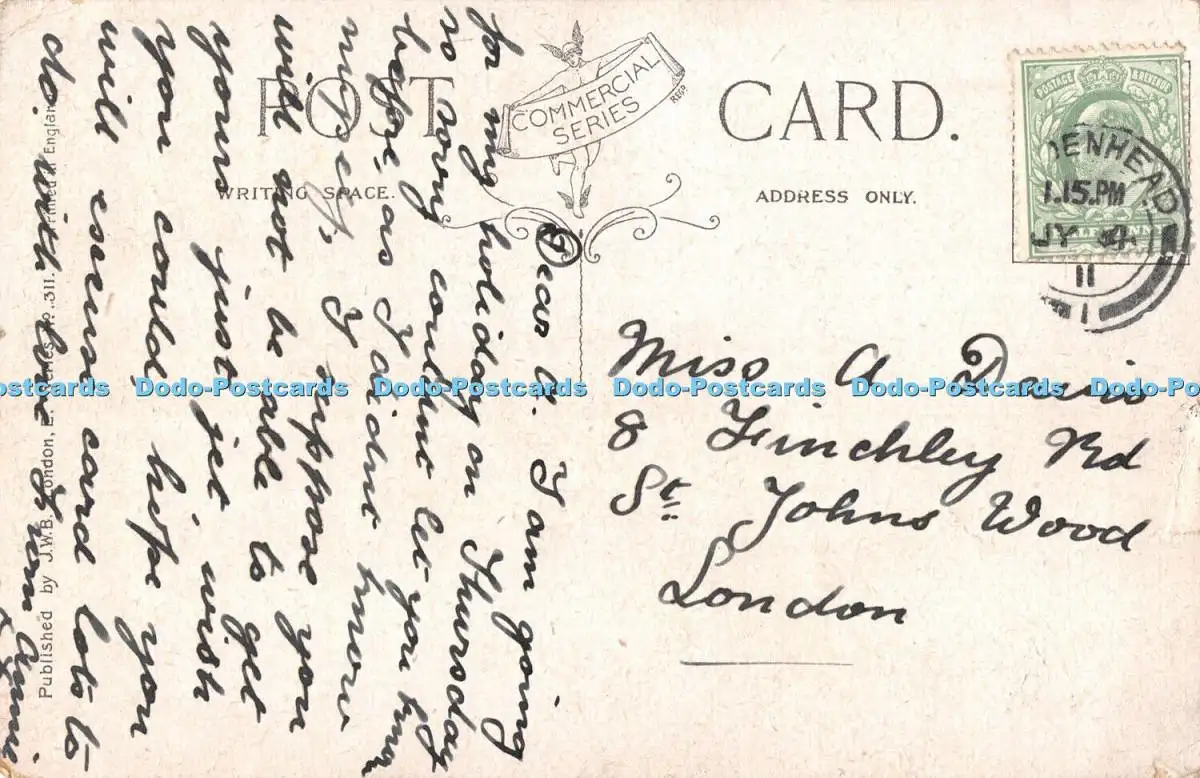 POST CARD.
COMMERCIAL
SERIES
REGD.
WRITING SPACE.
ADDRESS ONLY.
POSTAGE & REVENUE
DENHEAD
1.15.PM
JY 4
11
Miss A Davis
8 Finchley Rd
St Johns Wood
London
Dear A. I am going
for my holiday on Thursday
so sorry couldnt let you know
before, as I didnt know
myself, I suppose you
will not be able to get
yours just jet wish
you could, hope you
will excuse card lots to
do. with love from Annie
x
x
Published by J.W.B. London, E. Series No. 311. Printed in England
Dodo-Postcards Dodo-Postcards Dodo-Postcards Dodo-Postcards Dodo-Postcards